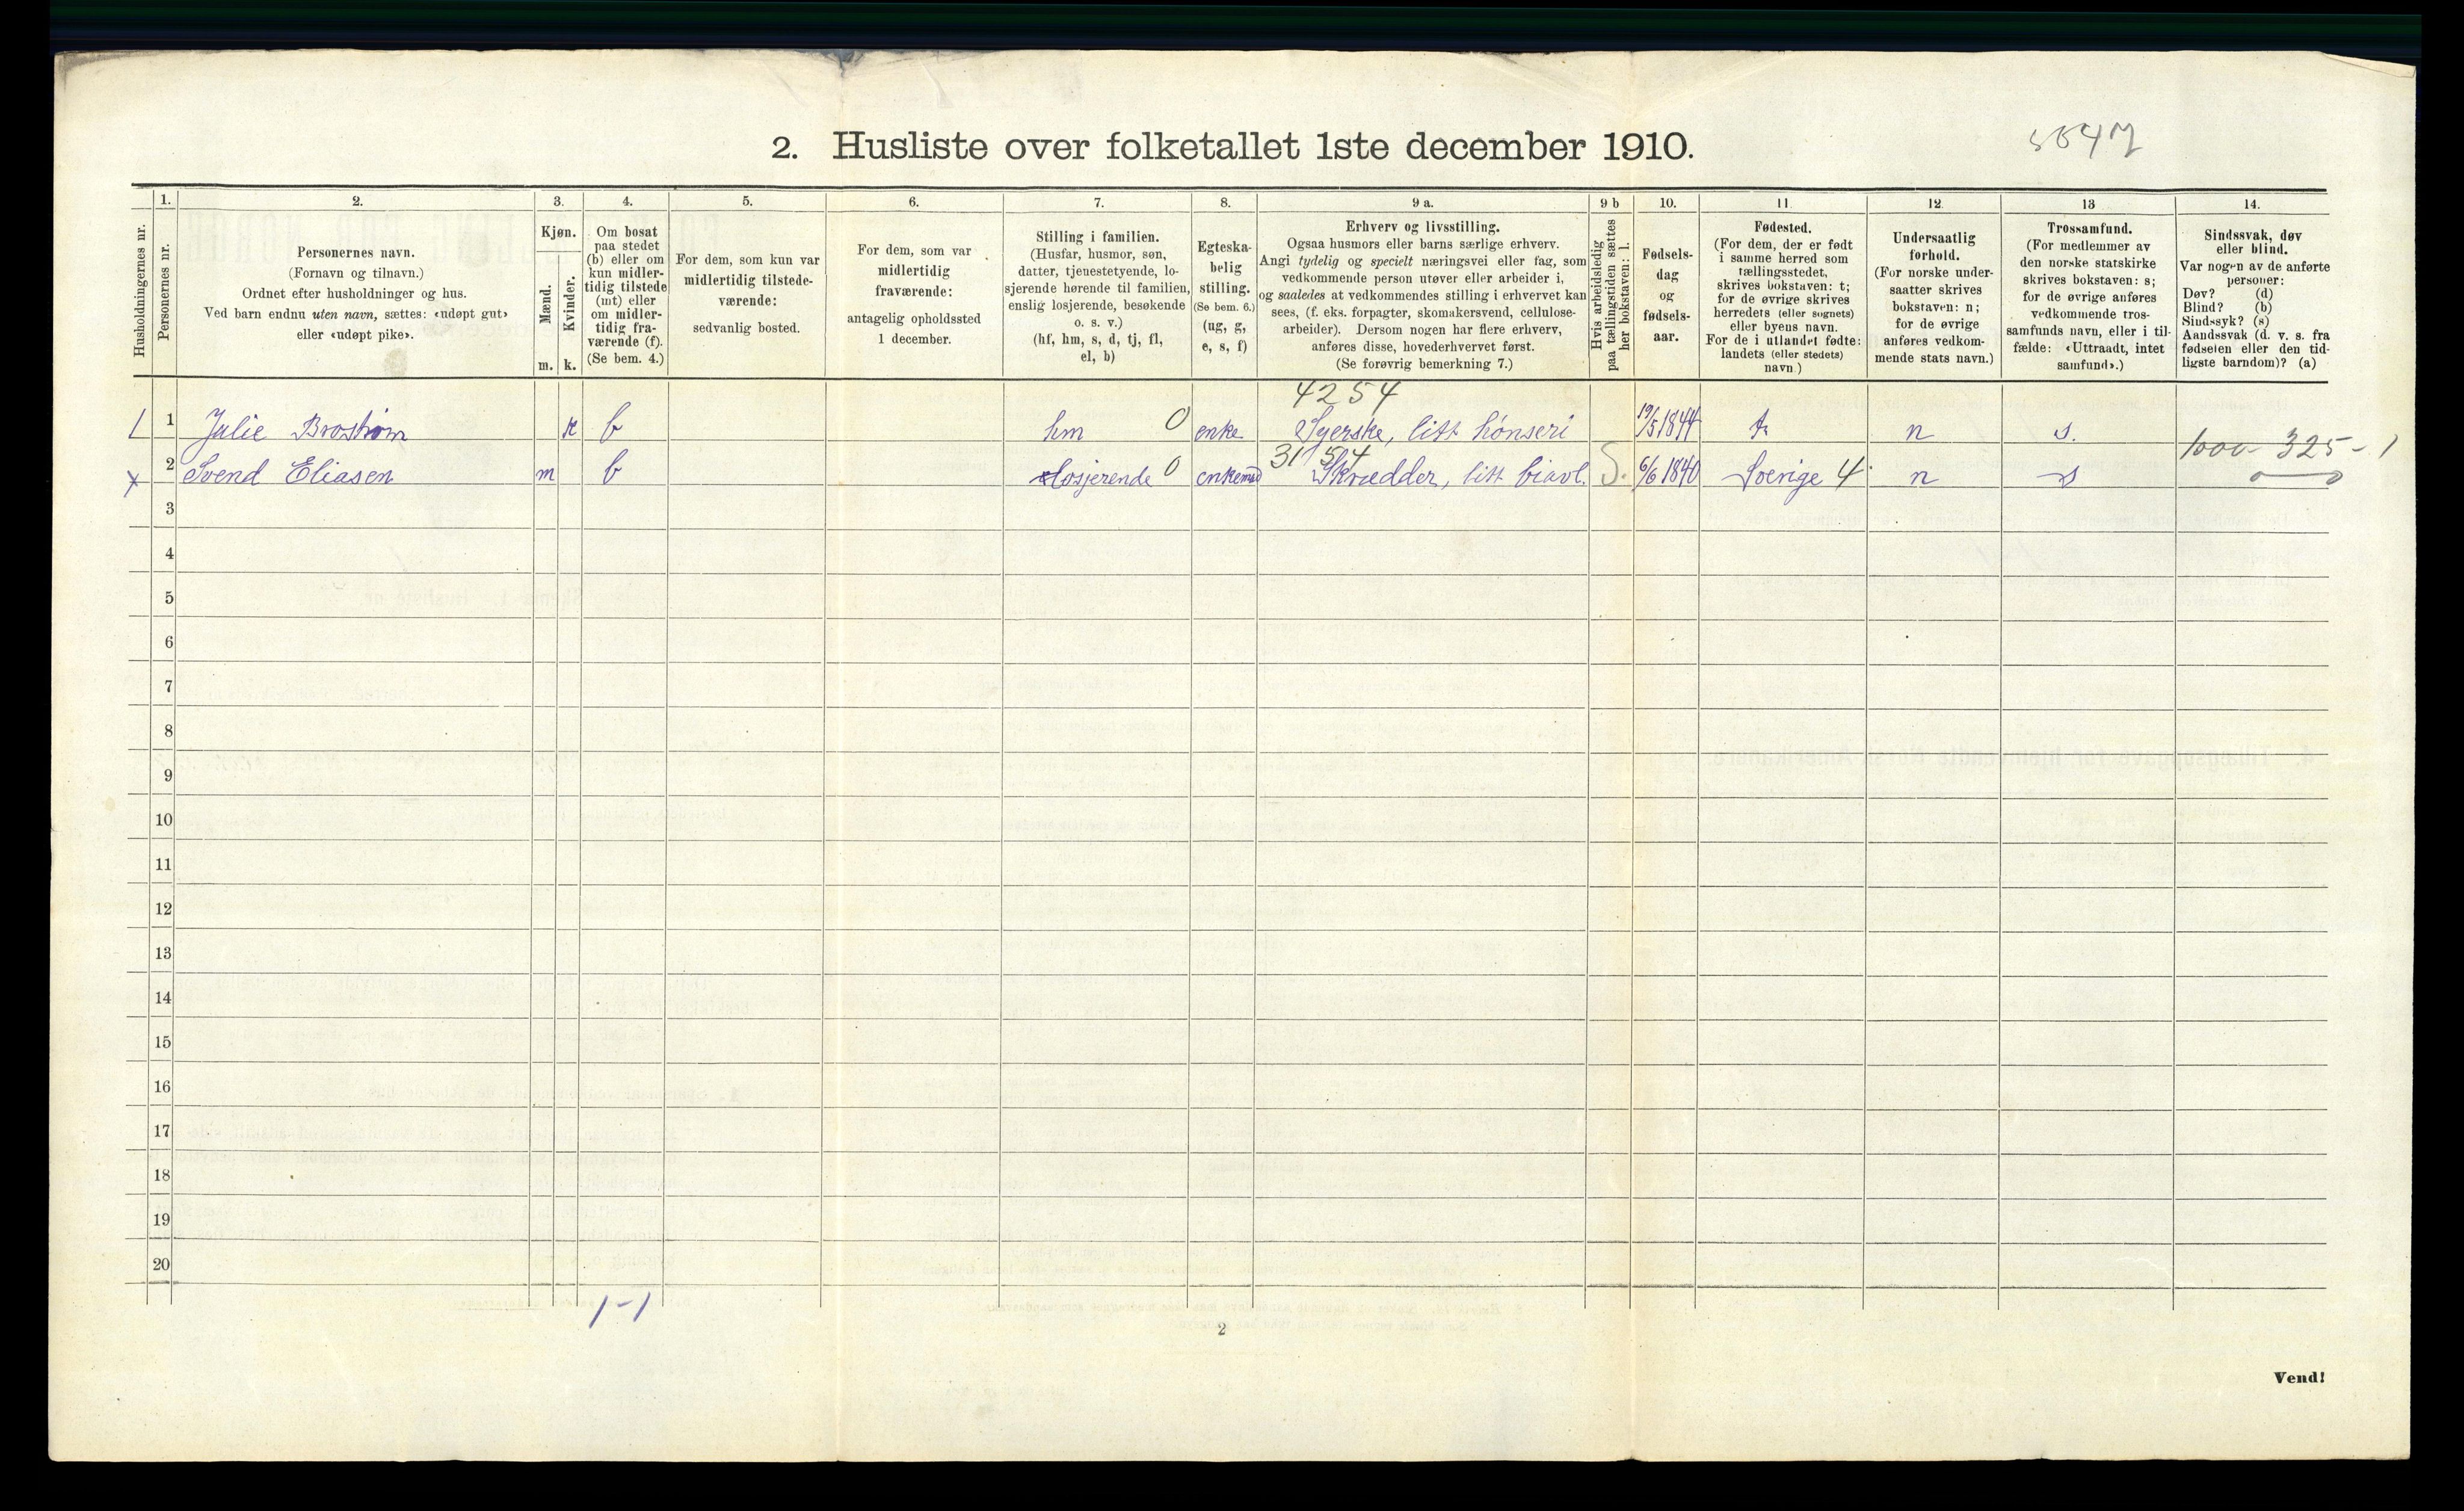 2. Husliste over folketallet 1ste december 1910.
Husholdningernes nr.
1.
Personernes nr.
2.
Personernes navn.
(Fornavn og tilnavn.)
Ordnet efter husholdninger og hus.
Ved barn endnu uten navn, sættes: «udøpt gut»
eller «udøpt pike».
3.
Kjøn.
Mænd.
Kvinder.
m. k.
4.
Om bosat
paa stedet
(b) eller om
kun midler-
tidig tilstede
(mt) eller
om midler-
tidig fra-
værende (f).
(Se bem. 4.)
5.
For dem, som kun var
midlertidig tilstede-
værende:
sedvanlig bosted.
6.
For dem, som var
midlertidig
fraværende:
antagelig opholdssted
1 december.
7.
Stilling i familien.
(Husfar, husmor, søn,
datter, tjenestetyende, lo-
sjerende hørende til familien,
enslig losjerende, besøkende
o. s. v.)
(hf, hm, s, d, tj, fl,
el, b)
8.
Egteska-
belig
stilling.
(Se bem. 6.)
(ug, g,
e, s, f)
9 a.
Erhverv og livsstilling.
Ogsaa husmors eller barns særlige erhverv.
Angi tydelig og specielt næringsvei eller fag, som
vedkommende person utøver eller arbeider i,
og saaledes at vedkommendes stilling i erhvervet kan
sees, (f. eks. forpagter, skomakersvend, cellulose-
arbeider). Dersom nogen har flere erhverv,
anføres disse, hovederhvervet først.
(Se forøvrig bemerkning 7.)
9 b
Hvis arbeidsledig
paa tællingstiden sættes
her bokstaven: l.
10.
Fødsels-
dag
og
fødsels-
aar.
11.
Fødested.
(For dem, der er født
i samme herred som
tællingsstedet,
skrives bokstaven: t;
for de øvrige skrives
herredets (eller sognets)
eller byens navn.
For de i utlandet fødte:
landets (eller stedets)
navn.)
12.
Undersaatlig
forhold.
(For norske under-
saatter skrives
bokstaven: n;
for de øvrige
anføres vedkom-
mende stats navn.)
13
Trossamfund.
(For medlemmer av
den norske statskirke
skrives bokstaven: s;
for de øvrige anføres
vedkommende tros-
samfunds navn, eller i til-
fælde: «Uttraadt, intet
samfund».)
14.
Sindssvak, døv
eller blind.
Var nogen av de anførte
personer:
Døv? (d)
Blind? (b)
Sindssyk? (s)
Aandssvak (d. v. s. fra
fødselen eller den tid-
ligste barndom)? (a)
4254
1 1 Julie Brostrøm k b hm 0 enke Syerske, litt hønseri 19/5 1844 t n s.
3154
x 2 Svend Eliasen m b losjerende 0 enkemd Skrædder, litt biavl. S. 6/6 1840 Sverige 4 n s
325 - 1
3
4
5
6
7
8
9
10
11
12
13
14
15
16
17
18
19
20
1-1
2
Vend!